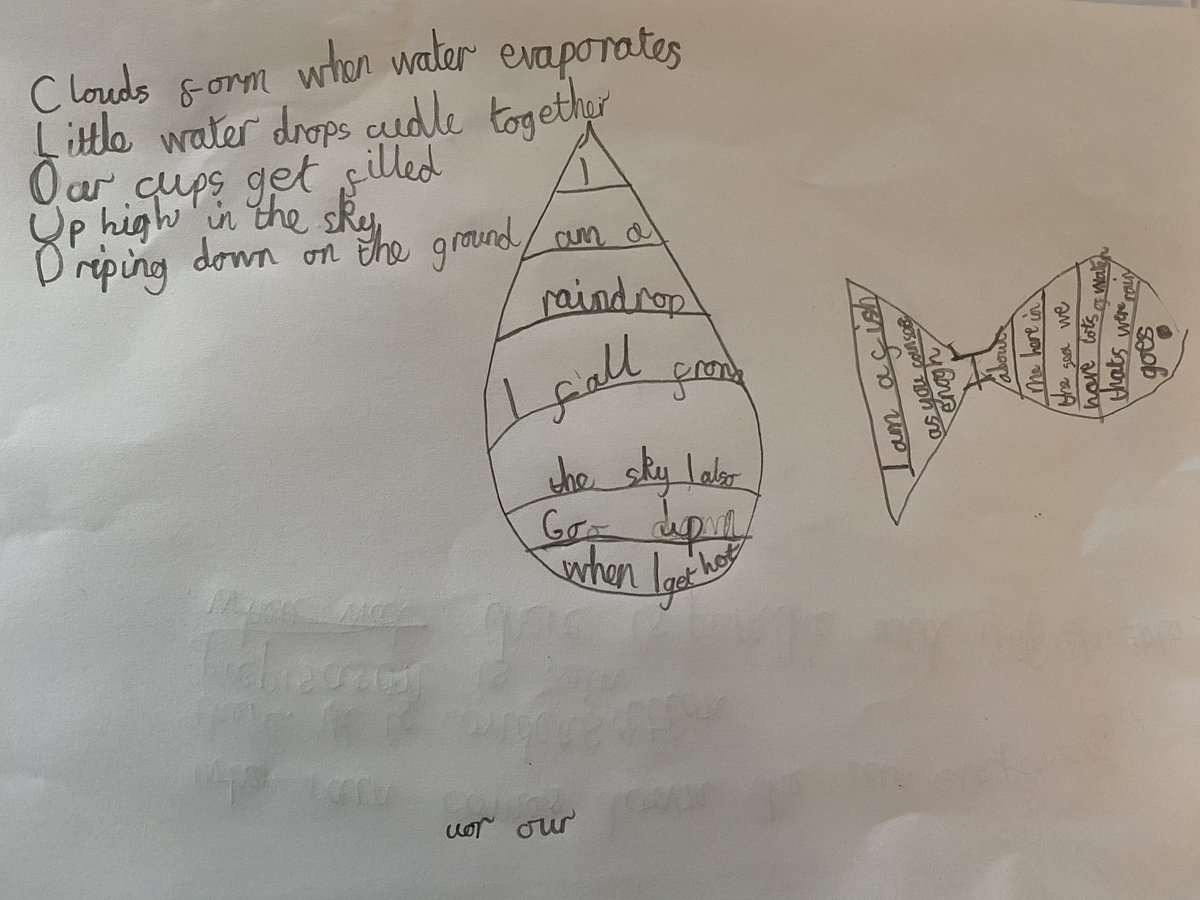 Clouds form when water evaporates
Little water drops cudle together
Our cups get filled
Up high in the sky
Driping down on the ground
I
am a
raindrop
I fall from
the sky I also
Go up
when I get hot
I am a fish
as you can see
enogh
about
me here in
the sea we
have lots of water
thats were rain
goes
uor our